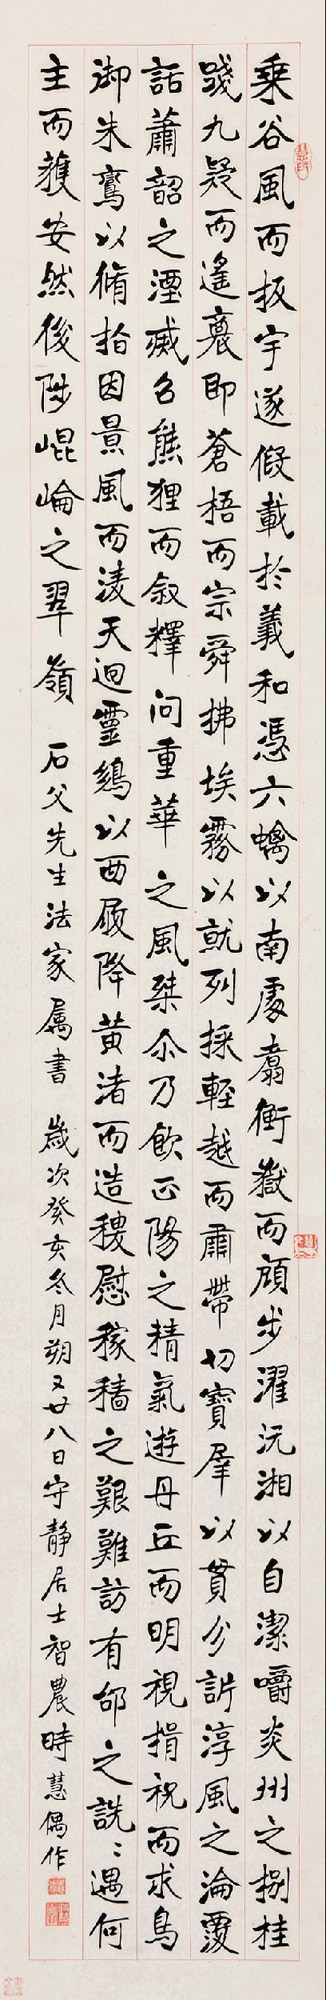 乘谷風而扳宇遂假載於羲和憑六螭以南處翥衡嶽而顧步濯沅湘以自潔嚼炎州之捌桂
踐九疑而遙裊即蒼梧而宗舜拂埃霧以就列採輕越而肅帶切寶犀以貫分訴淳風之淪覆
話蕭韶之湮滅召熊狸而敘釋問重華之風桀尒乃飲正陽之精氣遊丹丘而明視捐祝而求鳥
御朱鸞以脩指因景風而淩天迴靈鷁以西屐降黃渚而造稷慰稼穡之艱難訪有邰之詵〻遇何
主而獲安然後陟崐崘之翠嶺 石父先生法家屬書 歲次癸亥冬月朔又廿八日守靜居士智農時慧偶作